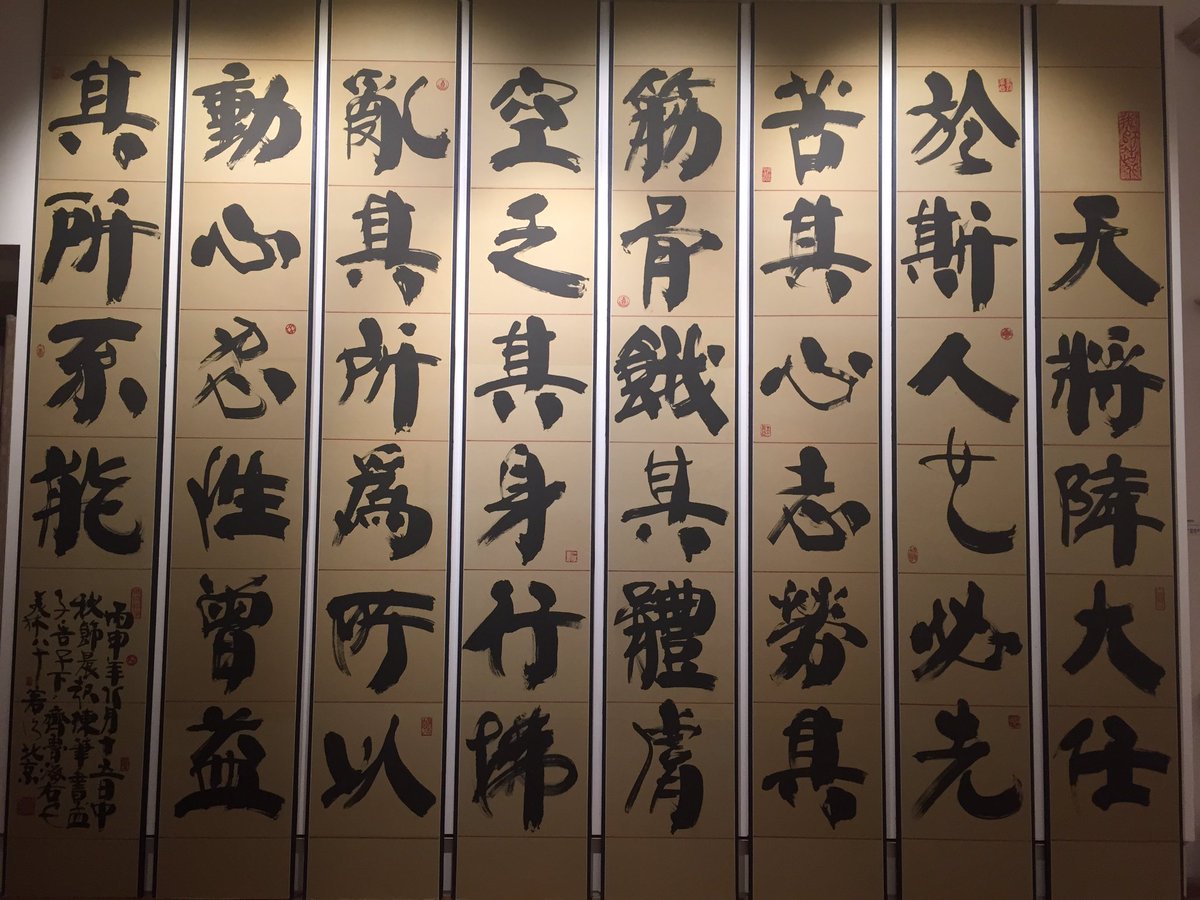 天將降大任
於斯人也必先
苦其心志勞其
筋骨餓其體膚
空乏其身行拂
亂其所爲所以
動心忍性曾益
其所不能
丙申年八月十五日中
秋節晨起陳筆書孟
子告子下
八十 北京